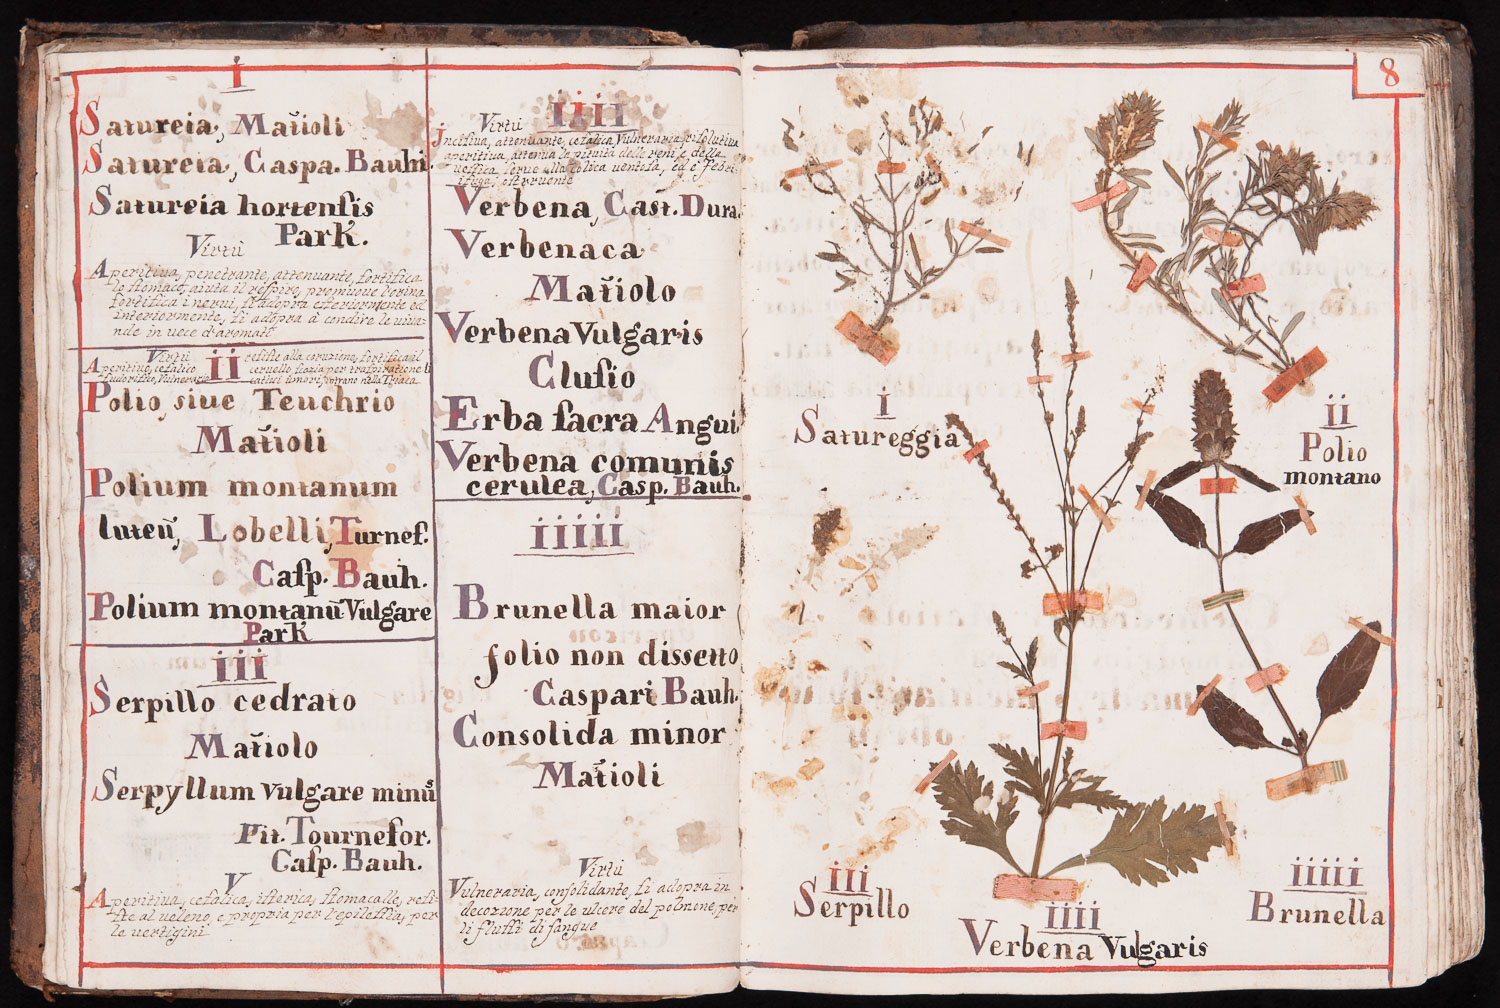 i
Satureia, Matioli
Satureia, Caspa. Bauhi.
Satureia hortensis
Park.
Virtù
Aperitiva, penetrante, attenuante, fortifica
lo stomaco, aiuta il respiro, promuove l'orina
fortifica i nervi, si adopra esteriormente ed
interiormente, si adopra à condire le viva-
nde in vece d'aromati
ii
Virtù
Aperitivo, cefalico
sudorifico, Vulnerario
resiste alla coruzione, fortifica il
cervello
umori, entrano nella Triaca
Polio, siue Teuchrio
Matioli
Polium montanum
luteũ, Lobelli, Turnef.
Casp. Bauh.
Polium montanũ Vulgare
Park
iii
Serpillo cedrato
Matiolo
Serpyllum Vulgare minũs
Pit. Tournefor.
Casp. Bauh.
V
Aperitiva, cefalica, isterica, stomacalle, resi-
ste al veleno, e propria per l'epilessia, per
le vertigini
iiii
Virtù
Incisiva, attenuante, cefalica, Vulneraria, risolutiva
aperitiva, attenua la pituita delle reni, e della
vessica, serve alla colica ventosa, ed è febri-
fuga,
Verbena, Cast. Dura.
Verbenaca
Matiolo
Verbena Vulgaris
Clusio
Erba sacra Angui
Verbena comunis
cerulea, Casp. Bauh.
iiiii
Brunella maior
folio non dissetto
Caspari Bauh.
Consolida minor
Matioli
Virtù
Vulneraria, consolidante, si adopra in
decozzone per le ulcere del polmone, per
li flussi di sangue
8
i
Satureggia
ii
Polio
montano
iii
Serpillo
iiii
Verbena Vulgaris
iiiii
Brunella